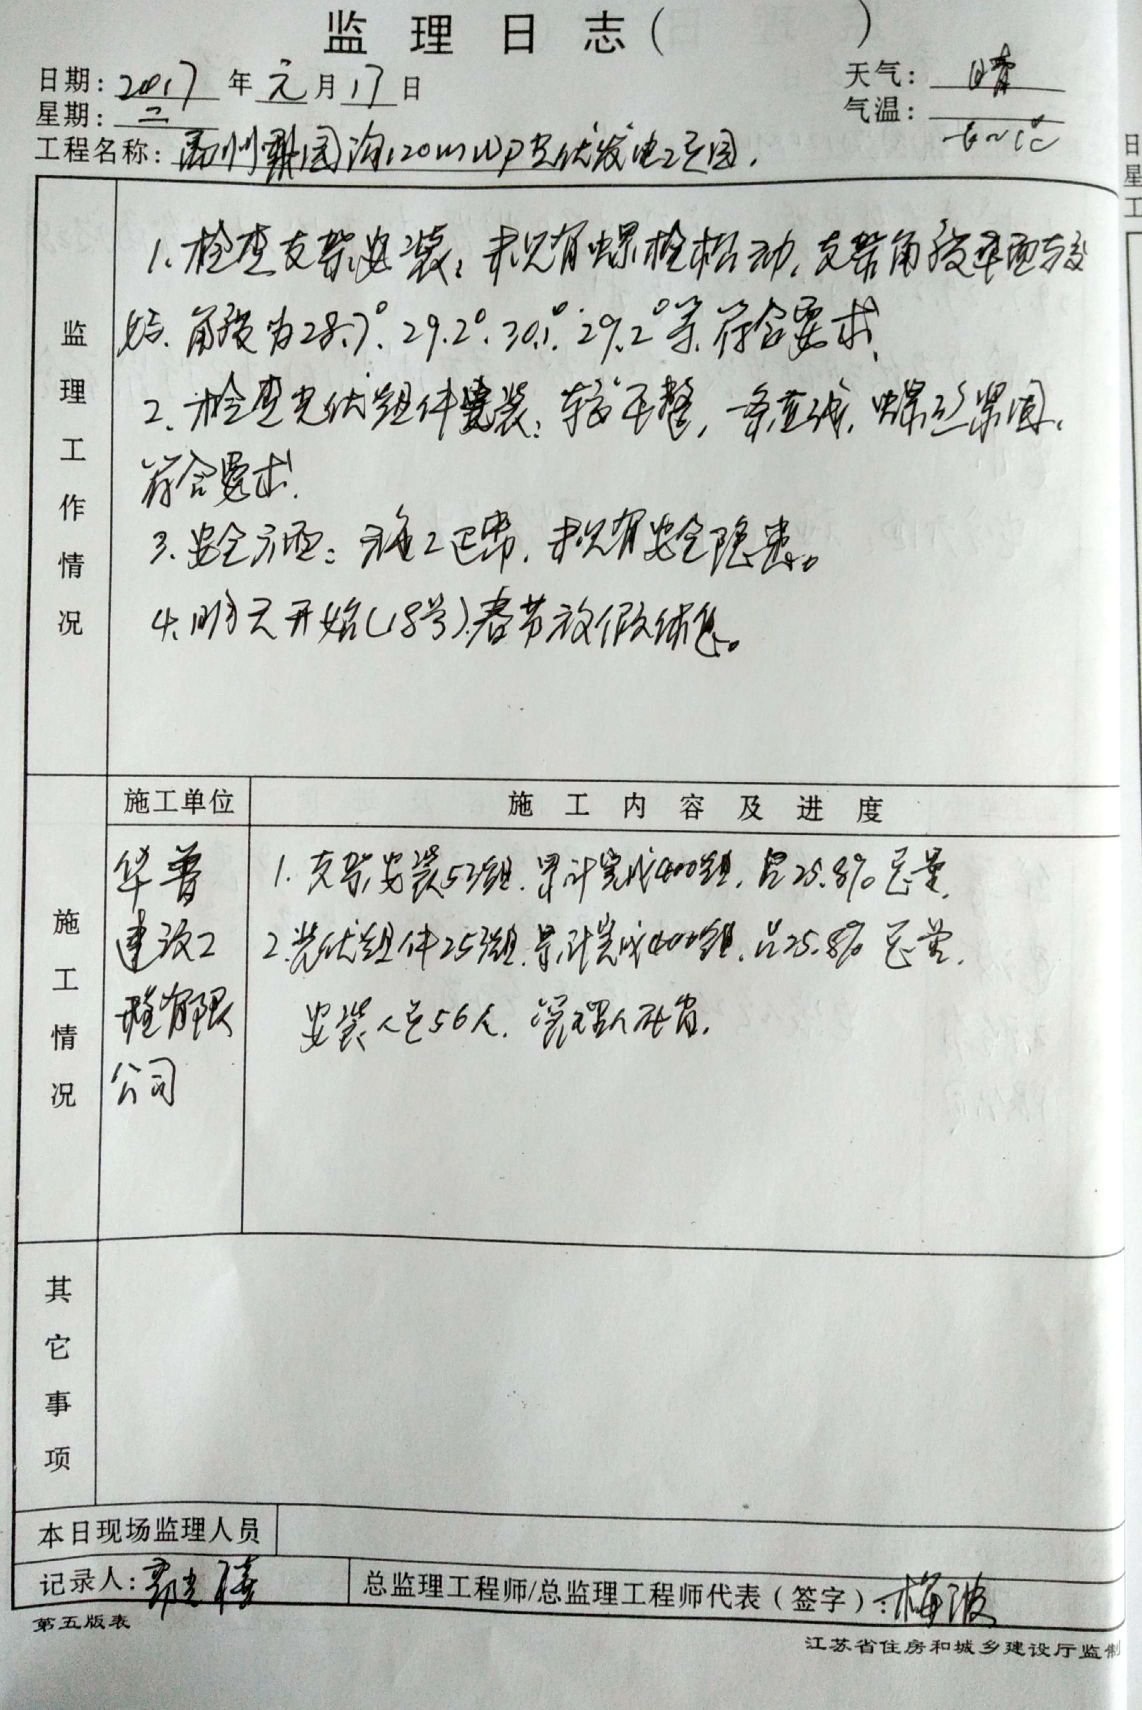 监理日志( )
日期: 2017 年 元 月 17 日
天气: 晴
星期: 二
气温:
工程名称: 禹州梨园沟120MWp光伏发电工程
监理工作情况
1、检查支架安装: 未见有螺栓松动, 支架角度平面较
好、角度为28.7°、29.2°、30.1°、29.2°等、符合要求、
2、检查光伏组件安装: 较平整, 一条直线, 螺丝紧固、
符合要求、
3、安全方面: 施工正常, 未见有安全隐患。
4、明天开始(18号)春节放假休息。
施工单位
施工内容及进度
施工情况
华普
建设工
程有限
公司
1. 支架安装53组. 累计完成400组, 占25.8% 总量、
2. 光伏组件253组. 累计完成400组, 占25.8% 总量、
安装人员56人、管理人员
其它事项
本日现场监理人员
记录人:
总监理工程师/总监理工程师代表(签字): 梅波
第五版表
江苏省住房和城乡建设厅监制
日
星
工